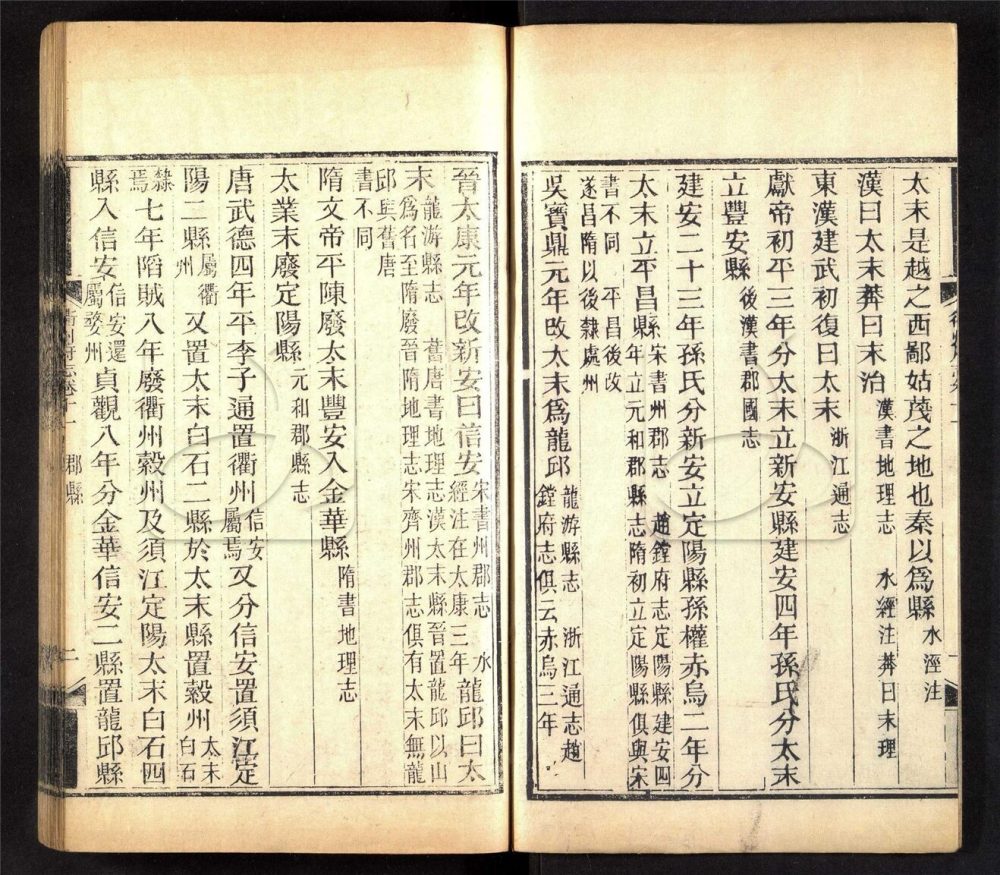 太末是越之西鄙姑蔑之地也秦以為縣水經注
漢曰太末莽曰末治漢書地理志 水經注莽曰末理
東漢建武初復曰太末浙江通志
獻帝初平三年分太末立新安縣建安四年孫氏分太末
立豐安縣後漢書郡國志
建安二十三年孫氏分新安立定陽縣孫權赤烏二年分
太末立平昌縣宋書州郡志 趙鏜府志定陽縣建安四年立元和郡縣志隋初立定陽縣俱與宋
書不同 平昌後改遂昌隋以後隸處州
吳寶鼎元年改太末為龍邱龍游縣志 浙江通志趙鏜府志俱云赤烏三年
晉太康元年改新安曰信安宋書州郡志 水經注在太康三年龍邱曰太
末龍游縣志 舊唐書地理志漢太末縣晉置龍邱以山為名至隋廢晉隋地理志宋齊州郡志俱有太末無龍
邱與舊唐書不同
隋文帝平陳廢太末豐安入金華縣隋書地理志
太業末廢定陽縣元和郡縣志
唐武德四年平李子通置衢州信安屬焉又分信安置須江定
陽二縣屬衢州又置太末白石二縣於太末縣置穀州太末白石
隸焉七年陷賊八年廢衢州穀州及須江定陽太末白石四
縣入信安信安還屬婺州貞觀八年分金華信安二縣置龍邱縣
衢州府志卷十一 郡縣 二